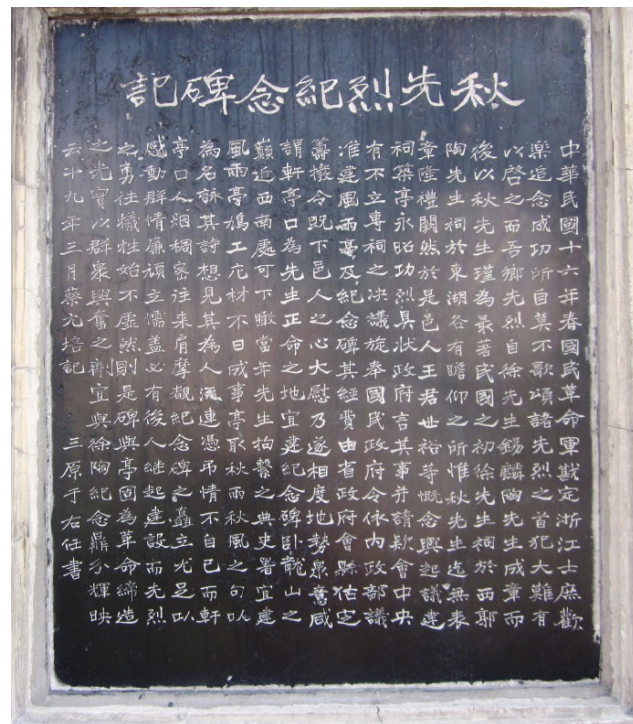 秋先烈紀念碑記
中華民國十六年春國民革命軍戡定浙江士庶歡
樂追念成功所自莫不歌頌諸先烈之首犯大難有
以啓之而吾鄉先烈自徐先生錫麟陶先生成章而
後以秋先生瑾為最著民國之初徐先生祠於西郭
陶先生祠於東湖各有瞻仰之所惟秋先生迄無表
章隆禮闕然於是邑人王君世裕等慨念興起議建
祠築亭永昭功烈具狀政府言其事并請欵會中央
有不立專祠之决議旋奉國民政府令依內政部議
准建風雨亭及紀念碑其經費由省政府會縣估定
籌撥令既下邑人之心大慰乃遂相度地勢衆舊咸
謂軒亭口為先生正命之地宜建紀念碑卧龍山之
巔近西南處可下瞰當年先生拘繫之典史署宜建
風雨亭鳩工庀材不日成事亭取秋雨秋風之句以
為名訴其詩想見其為人流連憑弔情不自已而軒
亭口人烟稠密往来肩摩觀紀念碑之矗立尤足以
感動群情廉頑立懦蓋必有後人继起建設而先烈
之勇往犧牲始不虛然則是碑與亭固為革命締造
之光實以群衆興奮之劑宜與徐陶紀念鼎分輝映
云十九年三月蔡元培記　三原于右任書